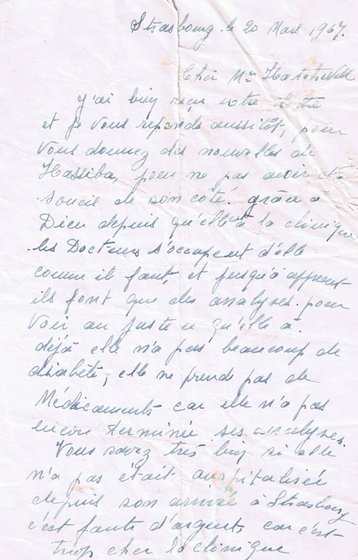 Strasbourg le 20 Mars 1967.
Cher Mr
J'ai bien reçu votre lettre
et je vous réponds aussitôt, pour
vous donnez des nouvelles de
Hassiba, pour ne pas avoir de
souci de son côté. grâce à
Dieu depuis qu'elle à la clinique
les Docteurs s'occupent d'elle
comme il faut, et jusqu'à
ils font que des analyses. pour
voir au juste ce qu'elle à.
déjà elle n'a pas beaucoup de
diabète, elle ne prends pas de
Médicaments car elle n'a pas
encore terminée ses analyses.
Vous savez très bien si elle
n'a pas était auspitalisée
depuis son arrivée à Strasbourg
c'est faute d'argents car c'est
trop cher la clinique